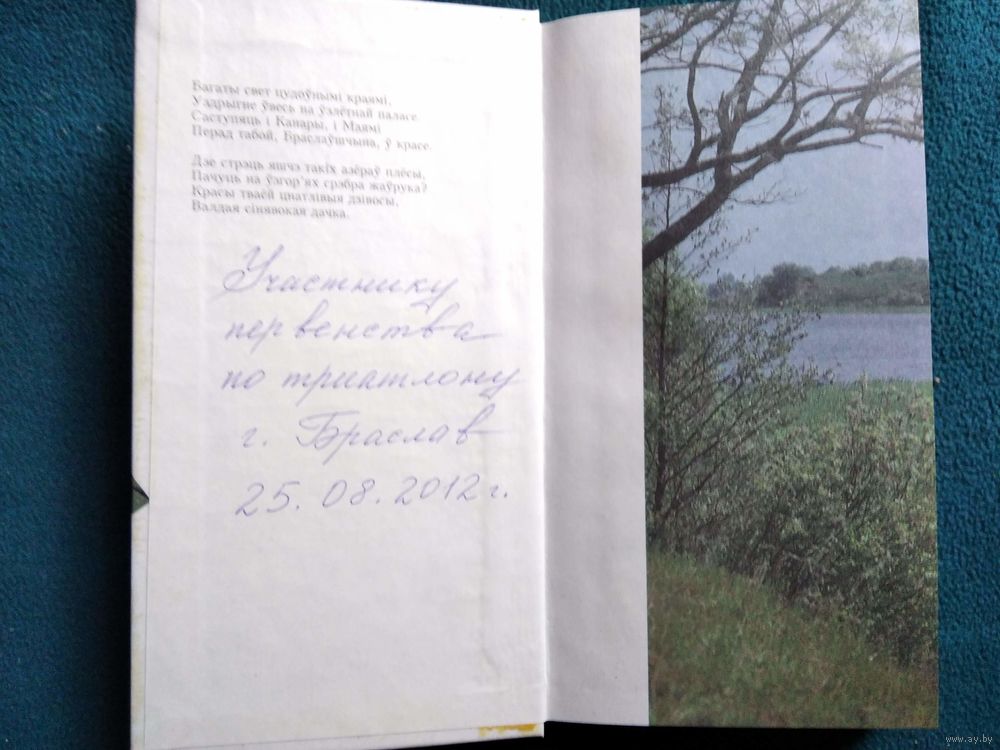 Багаты свет цудоўнымі краямі,
Уздрыгне ўвесь на ўзлётнай паласе.
Саступяць і Канары, і Маямі
Перад табой, Браслаўшчына, ў красе.
Дзе стрэць яшчэ такіх азёраў плёсы,
Пачуць на ўзгор'ях срэбра жаўрука?
Красы тваёй цнатлівыя дзівосы,
Валдая сінявокая дачка.
Участнику
первенства
по триатлону
г. Браслав
25.08.2012 г.
www.ay.by